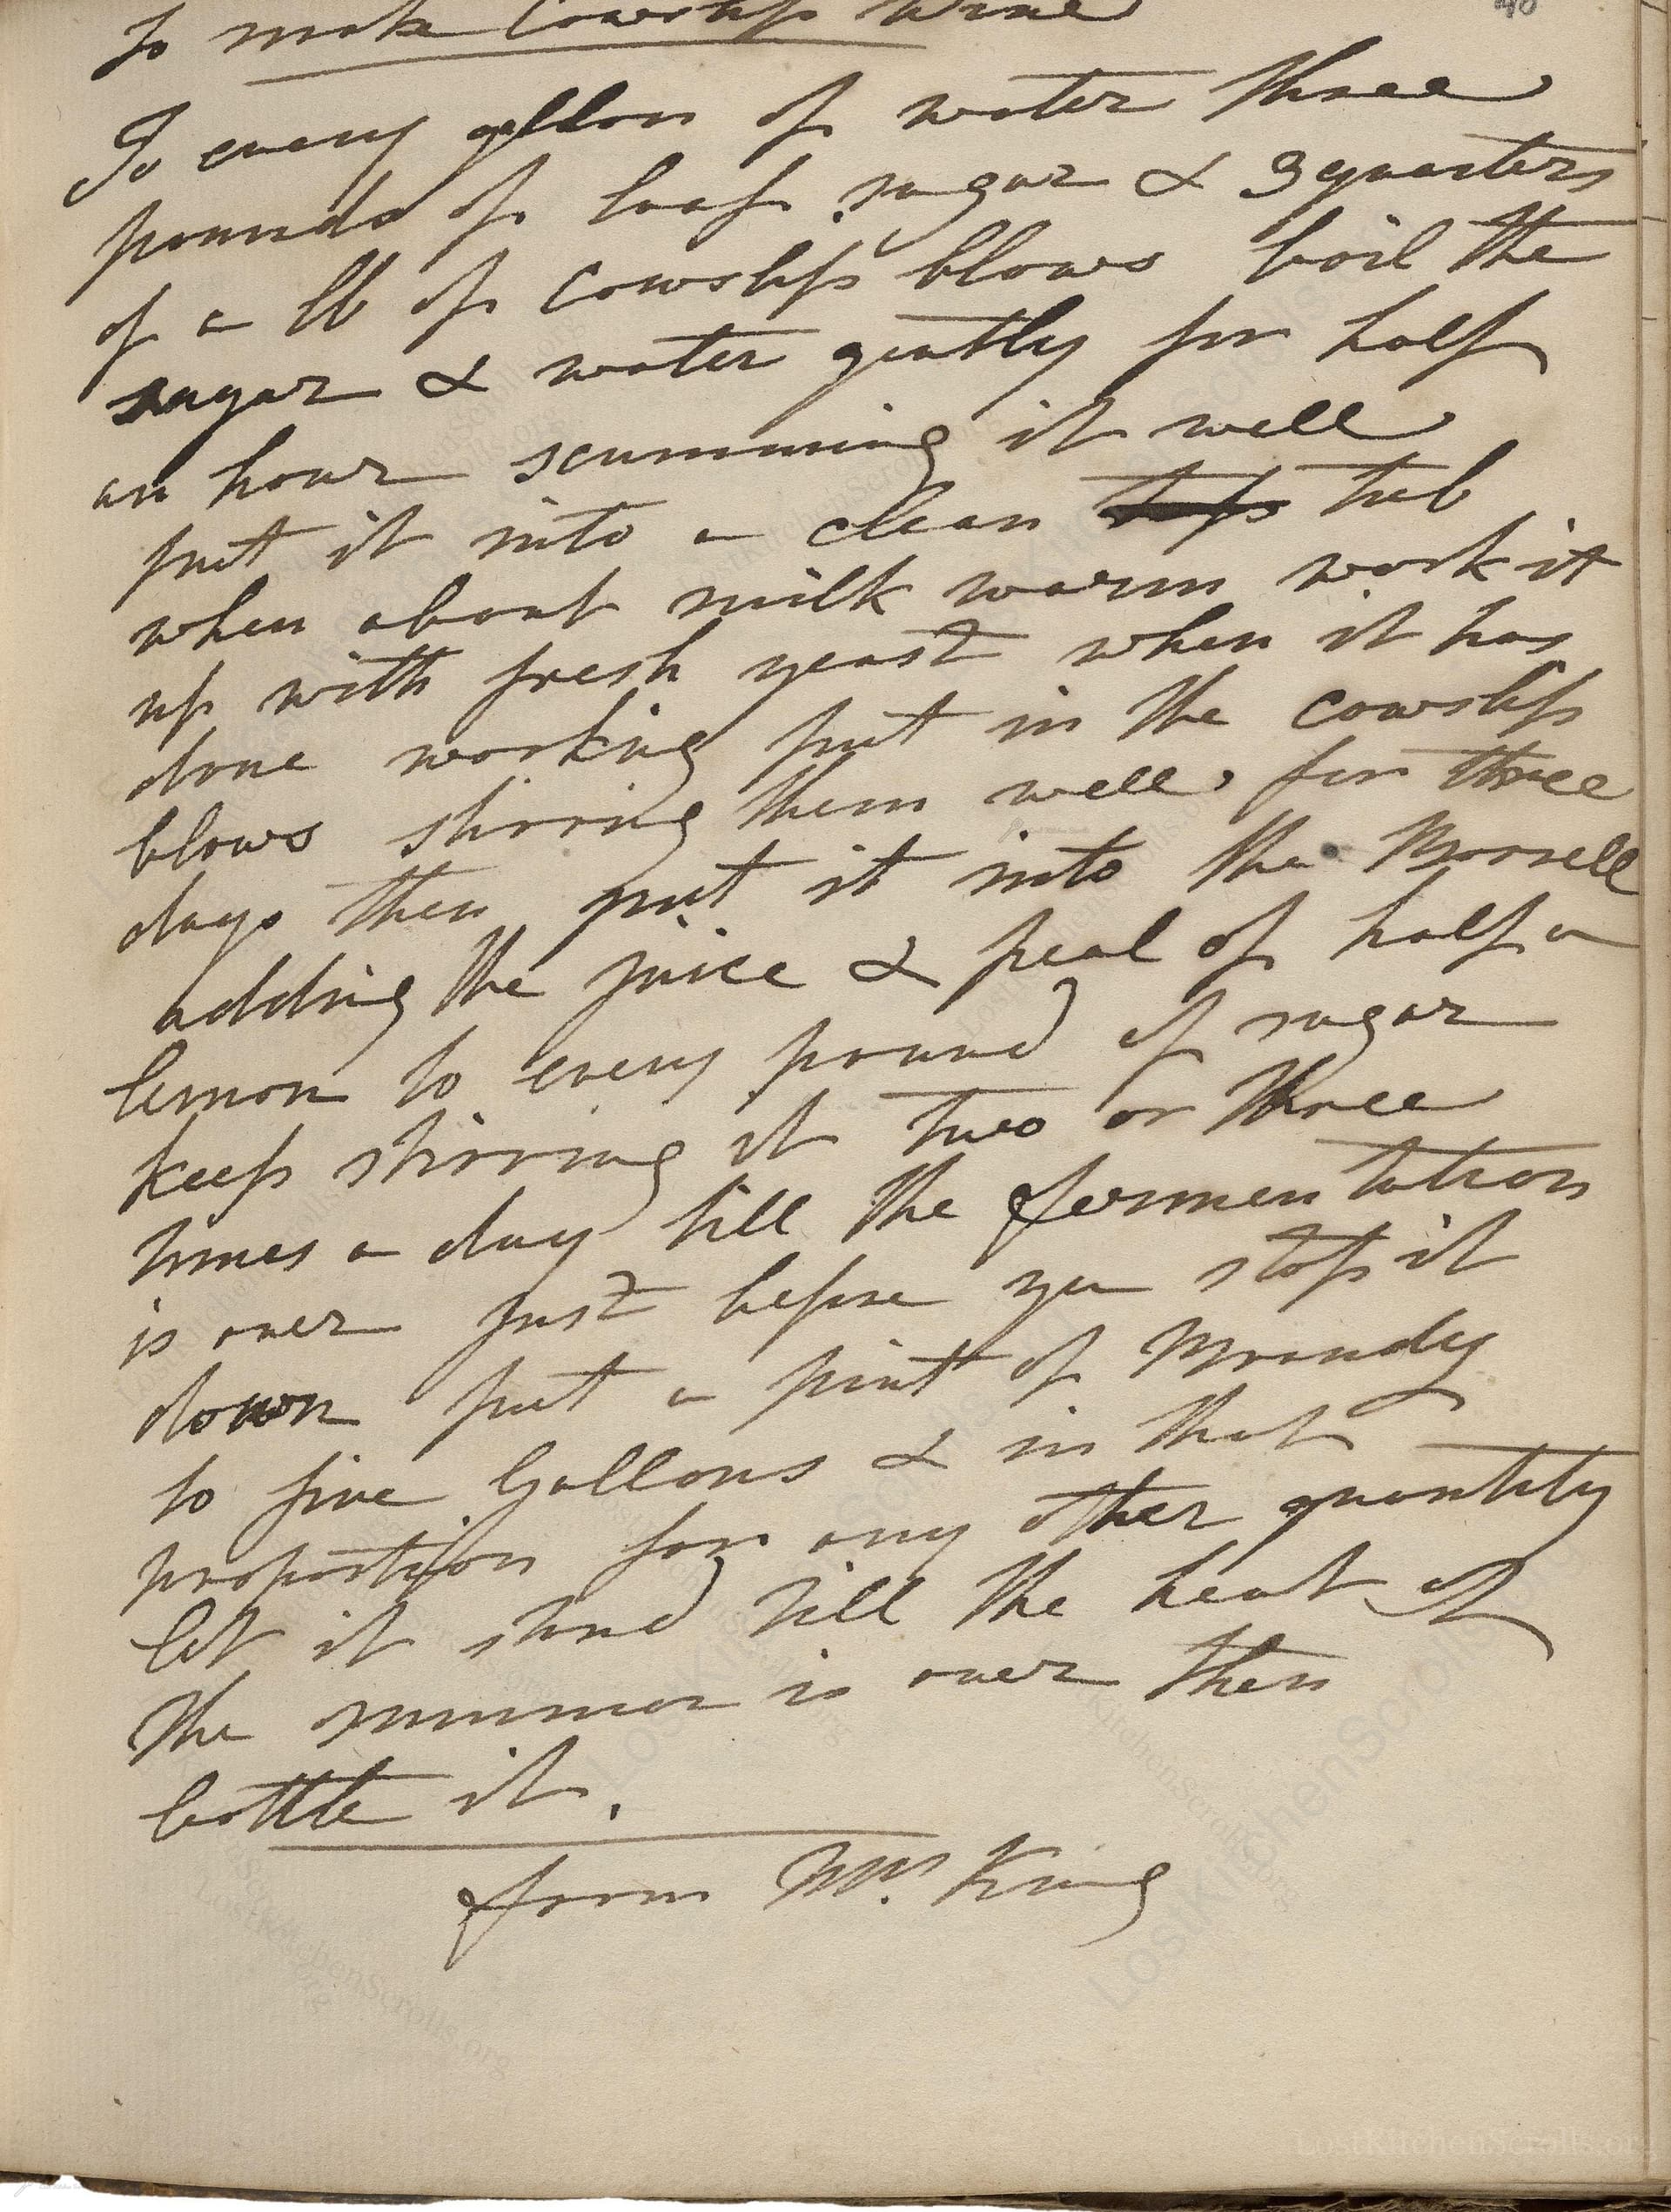 To make Cowslip Wine
40
To every gallon of water three
pounds of loaf sugar & 3 quarters
of a lb of Cowslip blows boil the
sugar & water gently for half
an hour scumming it well
put it into a clean tub
when about milk warm work it
up with fresh yeast when it has
done working put in the cowslip
blows stirring them well for three
days then put it into the Barrell
adding the juice & peal of half a
lemon to every pound of sugar
keep stirring it two or three
times a day till the fermentation
is over just before you stop it
down put a pint of Brandy
to five Gallons & in that
proportion for any other quantity
let it stand till the heat of
the summer is over then
bottle it.
from Mrs. King
LostKitchenScrolls.org